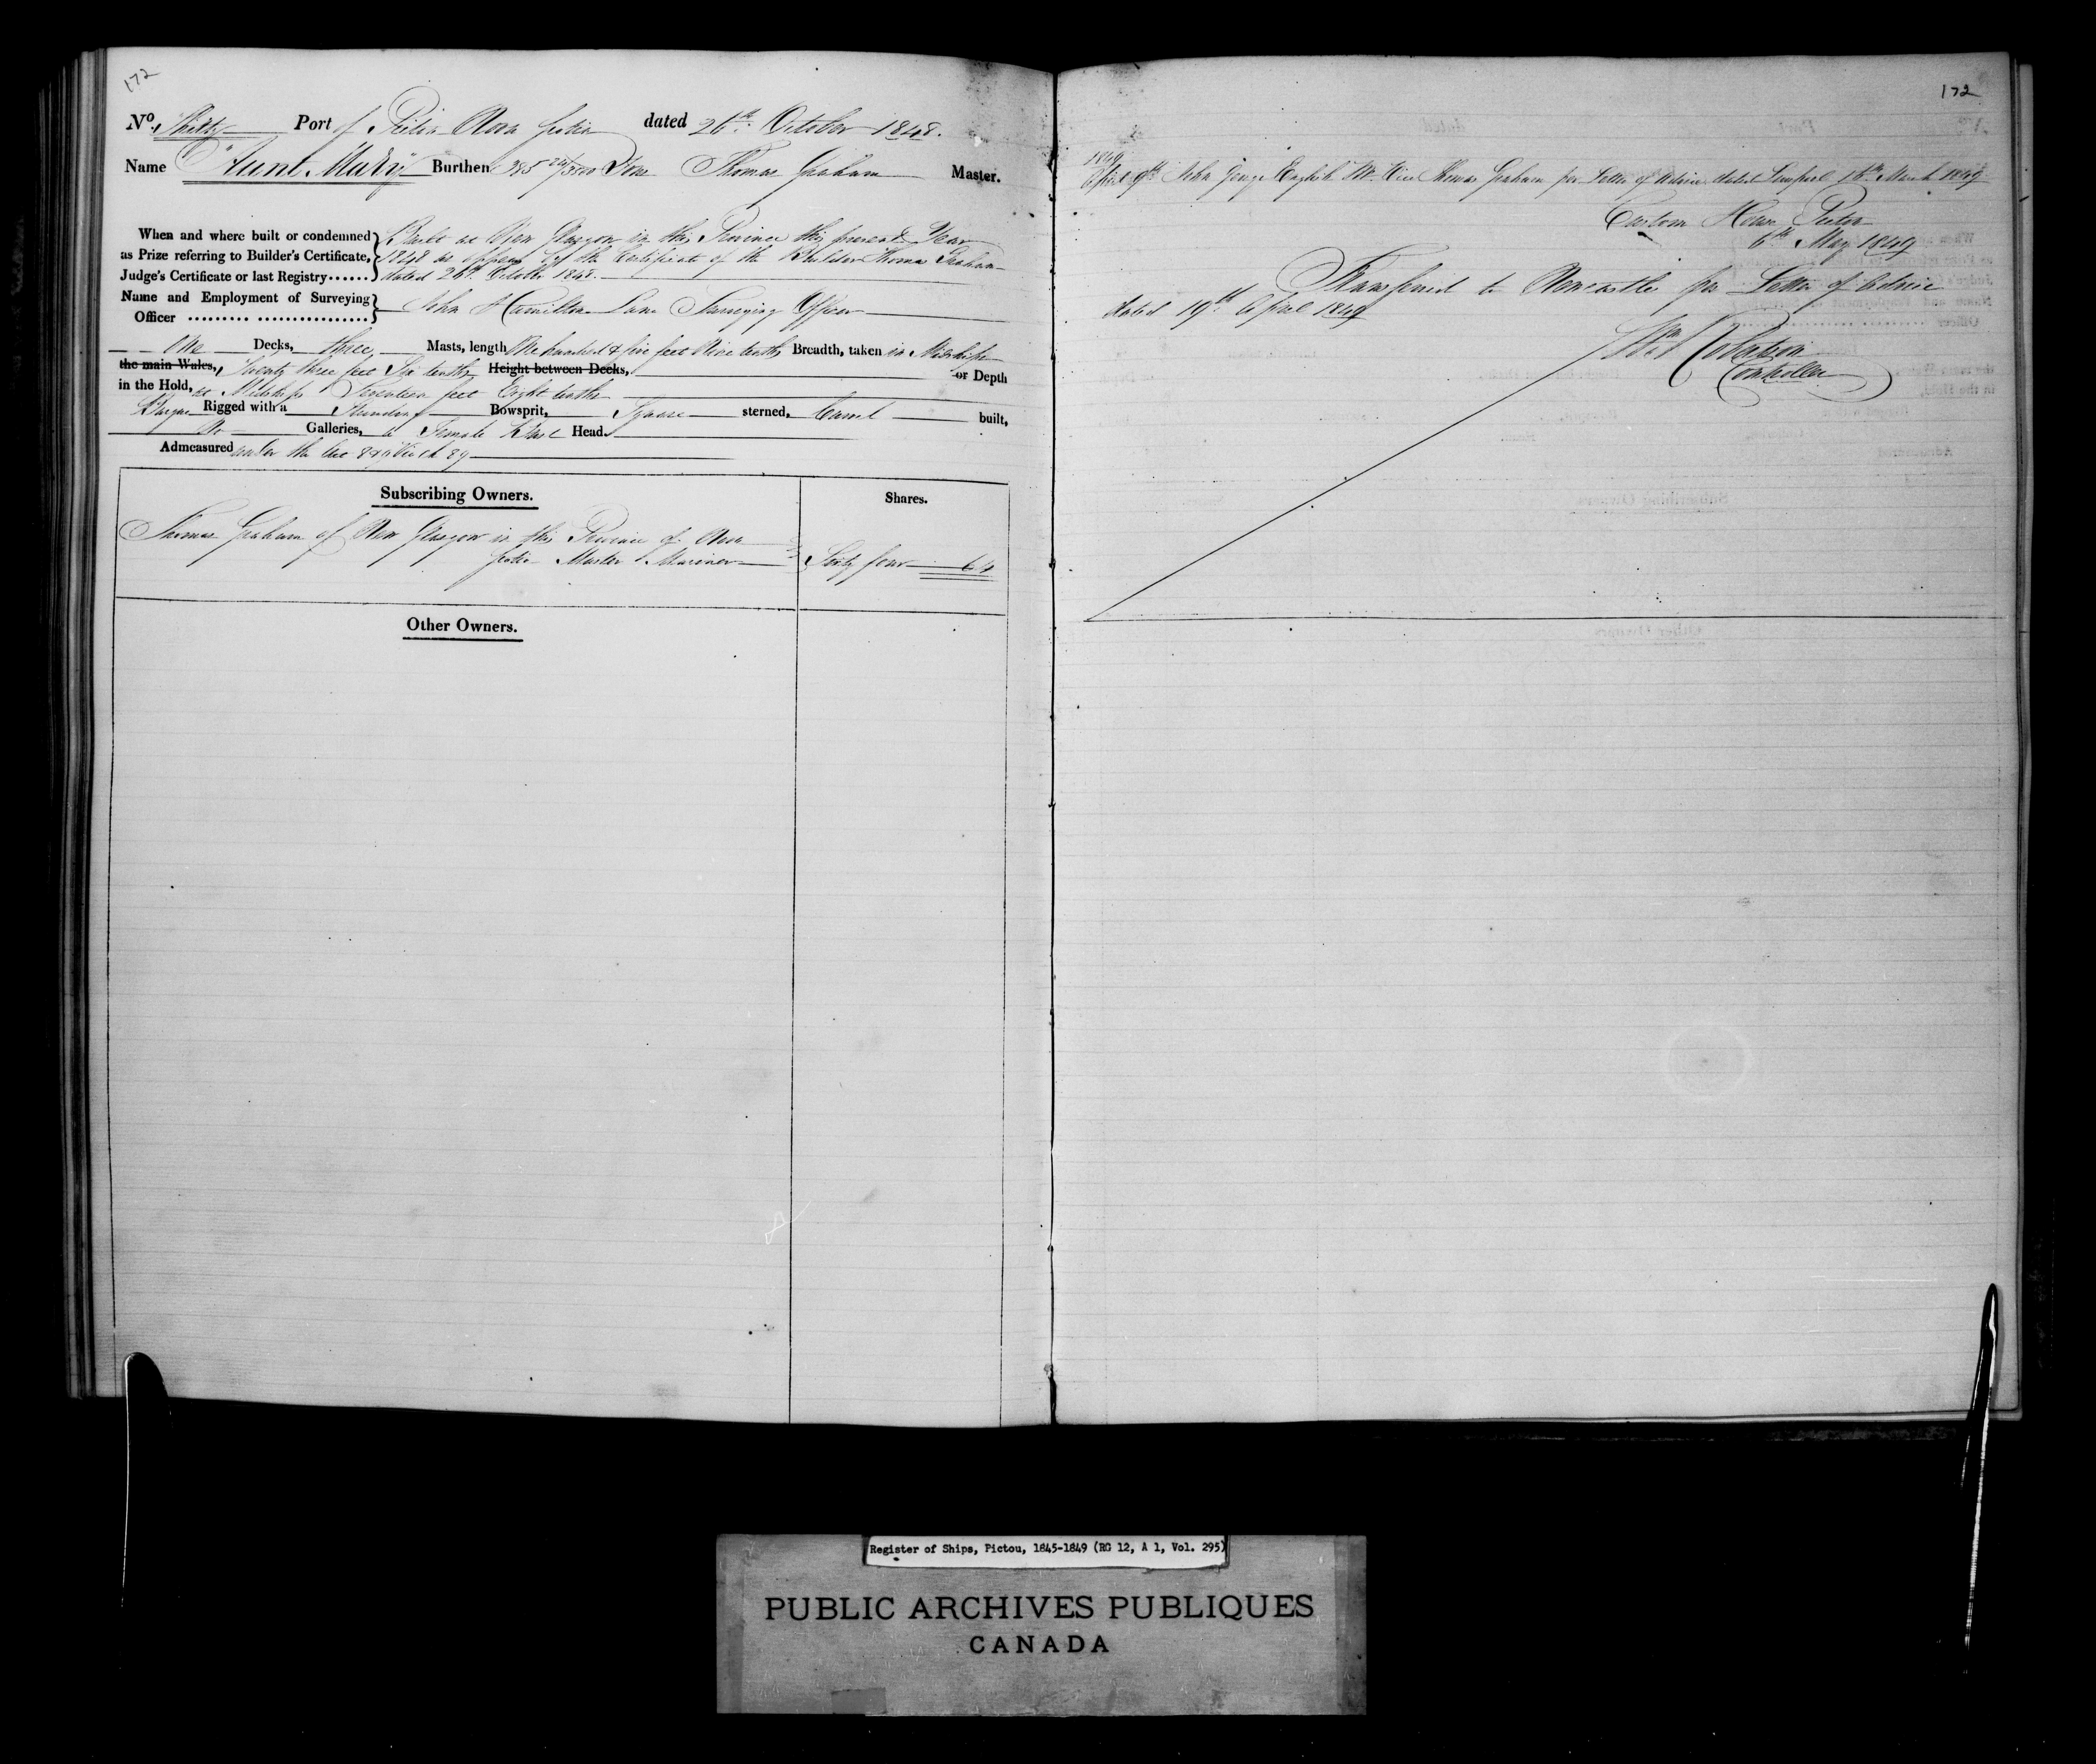 172
No. Thirty Port of Pictou Nova Scotia dated 26th October 1848.
Name "Aunt Mary" Burthen 385 Tons Thomas Graham Master.
When and where built or condemned Built at New Glasgow in this Province this present Year
as Prize referring to Builder's Certificate, 1848 as appears by the Certificate of the Builder Thomas Graham
Judge's Certificate or last Registry...... dated 26th October 1848.
Name and Employment of Surveying
Officer ......... ................ John Hamilton Lane Surveying Officer
One Decks, three Masts, length One hundred & five feet Nine tenths Breadth, taken in Midships
the main Wales, Twenty three feet Six tenths Height between Decks, or Depth
in the Hold, at Midships Seventeen feet Eight tenths
Barque Rigged with a Standing Bowsprit, Square sterned, Carvel built,
No Galleries, a Female Bust Head.
Admeasured under the Act 8 & 9 Vict 89
Subscribing Owners. Shares.
Thomas Graham of New Glasgow in this Province of Nova
Scotia Master Mariner Sixty four 64
Other Owners.
172
1849
April 9th John George English Mr. Vice Thomas Graham per Letter of Advice dated Liverpool March 1849
Custom House Pictou
6th May 1849
Transferred to Newcastle per Letter of Advice
dated 19th April 1849
Wm Robertson
Controller
Register of Ships, Pictou, 1845-1849 (RG 12, A 1, Vol. 295)
PUBLIC ARCHIVES PUBLIQUES
CANADA